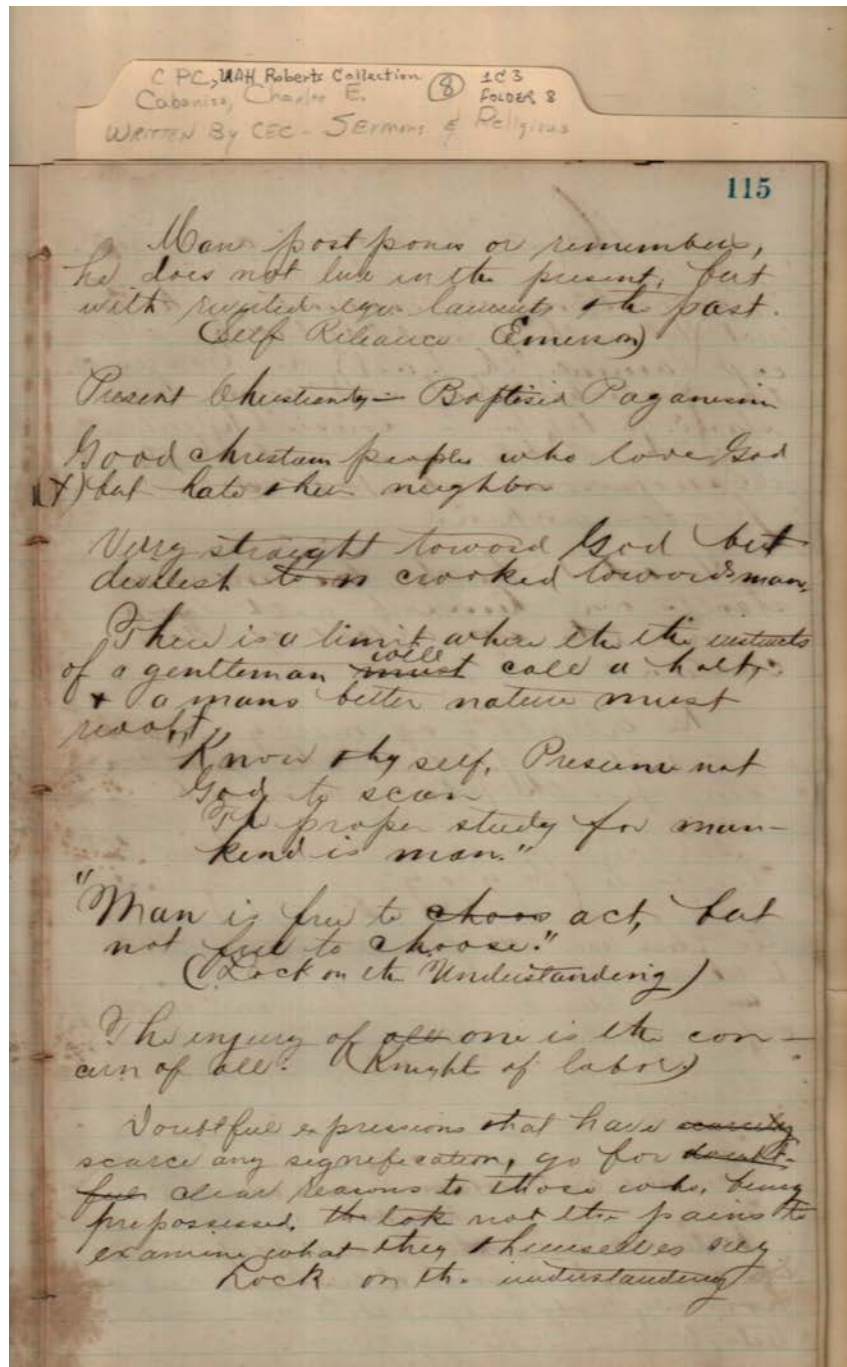 C PC, UAH Roberts Collection (8) 1C3
Cabaniss, Charles E. FOLDER 8
WRITTEN By CEC - SErmons & Religious
115
Man postpones or remembers,
he does not live in the present, but
with reverted eye laments the past.
(Self Reliance Emerson)
Present Christianity = Baptised Paganism
Good christain people who love God
X) but hate their neighbor
Very straight toward God but
crooked towards man.
There is a limit where the the instincts
of a gentleman must will call a halt,
+ a mans better nature must
revolt,
Know thy self, Presume not
God to scan
The proper study for man-
kind is man."
"Man is free to choos act, but
not free to choose."
(Lock on the Understanding)
The injury of all one is the con-
cern of all. (Knights of labor)
Doubtful expressions that have scarcely
scarce any signification, go for doubt-
ful clear reasons to those who, being
prepossessed, th take not the pains to
examine what they themselves say
Lock on the understanding